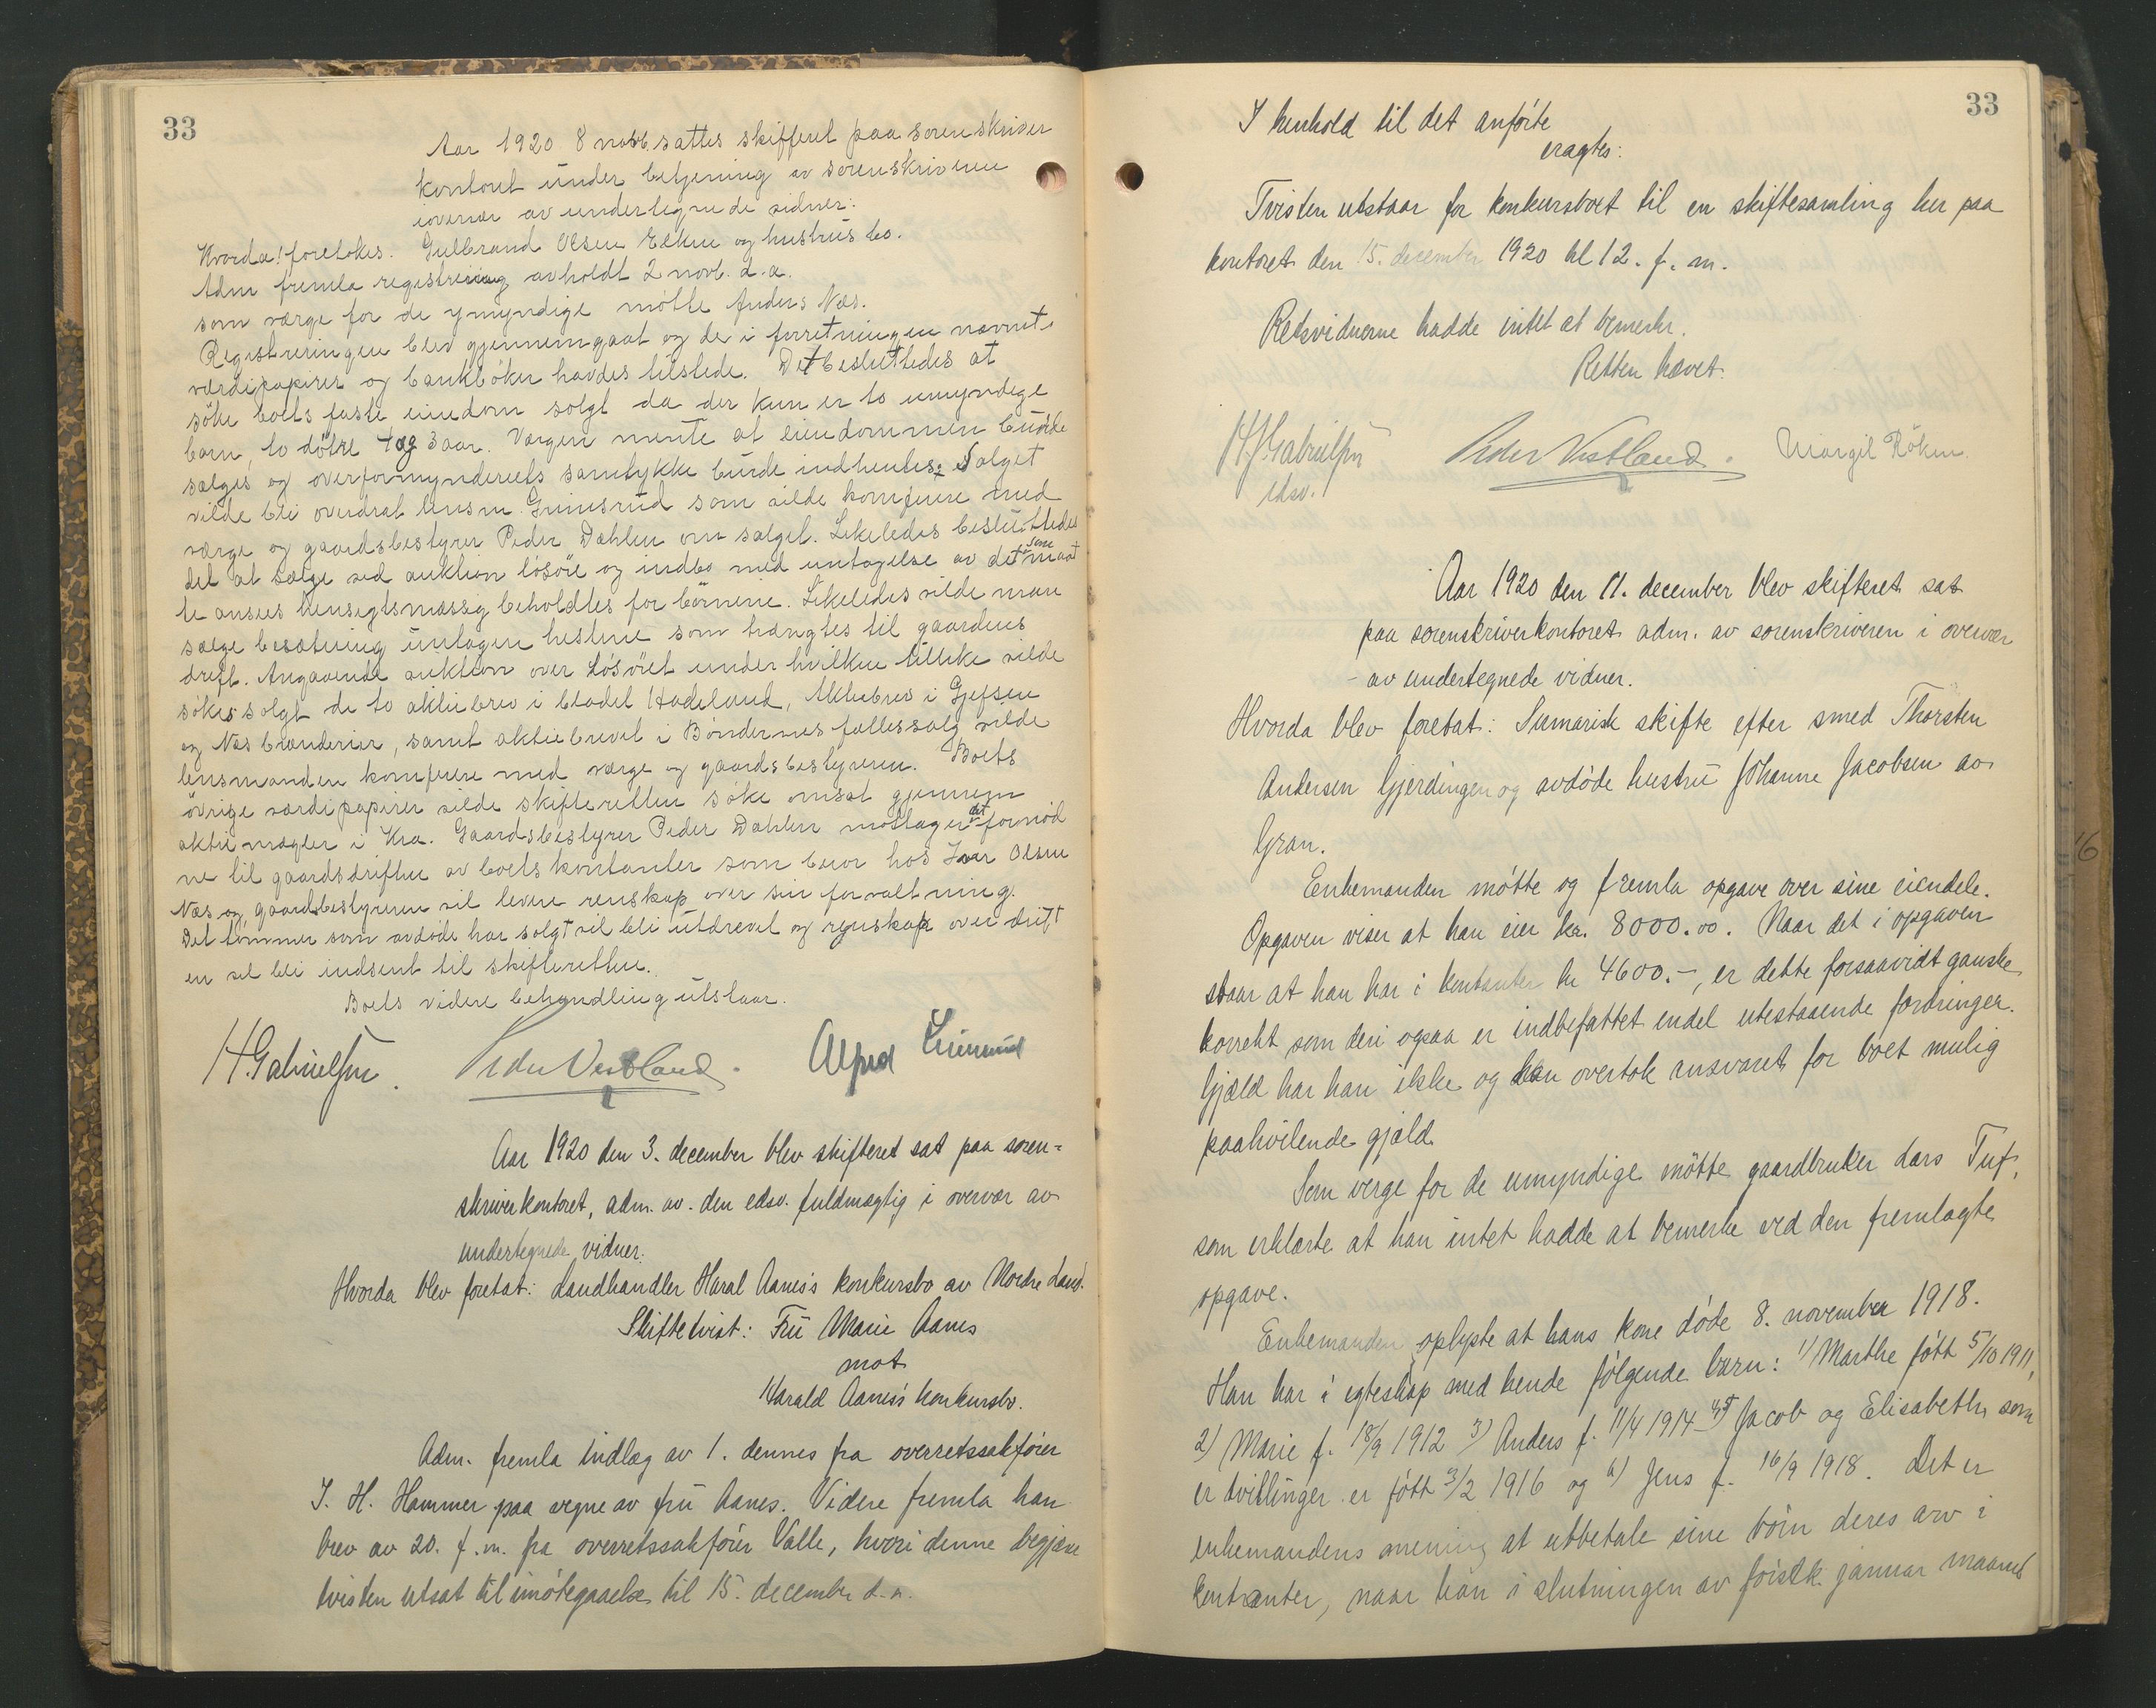 33
Aar 1920 8 novb. sattes skifferet paa sorenskriver
kontoret under betjening av sorenskriveren
iovervær av undertegnede vidner.
Hvorda! foretokes. Gulbrand Olsen Elken og hustrus bo.
Adm fremla registrering avholdt 2 novb. d.a.
som værge for de ymyndige møtte Anders Næs.
Registreringen blev gjennemgaat og de i forretningen nævnte
værdipapirer og bankbøker havdes tilstede. Det besluttedes at
søke boets faste eiendom solgt da der kun er to umyndige
barn, to døtre 4 og 3 aar. Værgen mente at eiendommen burde
sælges og overformynderiets samtykke burde indhentes; Salget
vilde bli overdrat lensm. Grinisrud som vilde komferere med
værge og gaardsbestyrer Peder Dæhlen om salget. Likeledes besluttedes
det at sælge ved auktion løsøre og indbo med untagelse av det som maat
te ansees hensigtsmæssig beholdtes for børnene. Likeledes vilde man
sælge besætning untagen hestene som trængtes til gaardens
drift. Angaaende auktion over Løsøret under hvilken tillike vilde
søkes solgt de to aktiebrev i bladet Hadeland, Aktiebrev i Gjefsen
og Næs brænderier, samt aktiebrevet i Bøndernes fællessalg vilde
lensmanden komferere med værge og gaardsbestyreren. Boets
øvrige værdipapirer vilde skifteretten søke omsat gjennem
aktiemægler i Kra. Gaardsbestyrer Peder Dæhlen mottager det fornød
ne til gaardsdriften av boets kontanter som beror hos Iver Olsen
Næs og gaardsbestyreren vil levere renskap over sin forvaltning.
Det tømmer som avdøde har solgt vil bli utdrevet og renskap over drift
en vil bli indsent til skifteretten.
Boets videre behandling utstaar.
H. Gabrielsen. Peder Vestland. Alfred
Aar 1920 den 3. december blev skifteret sat paa soren=
skriverkontoret, adm. av. den edsv. fuldmægtig i overvær av
undertegnede vidner.
Hvorda blev foretat: Landhandler Haral Aanes's konkursbo av Nordre Land.
Skiftetvist: Fru Marie Aanes
mot
Harald Aanes's konkursbo.
Adm. fremla Indlæg av 1. dennes fra overretssakfører
J. H. Hammer paa vegne av fru Aanes. Videre fremla han
brev av 20. f.m. fra overretssakfører Valle, hvori denne begjære
tvisten utsat til imøtegaaelse til 15. december d.a.
33
I henhold til det anførte
eragtes:
Tvisten utstaar for konkursboet til en skiftesamling her paa
kontoret den 15. december 1920 kl 12. f. m.
Retsvidnerne hadde intet at bemerke.
Retten hævet.
H. Gabrielsen Peder Vestland. Margit Røken.
edsv.
Aar 1920 den 11. december blev skifteret sat
paa sorenskriverkontoret adm. av sorenskriveren i overvær
av undertegnede vidner.
Hvorda blev foretat: Sumarisk skifte efter smed Thorsten
Andersen Gjerdingen og avdøde hustru Johanne Jacobsen av
Gran.
Enkemanden møtte og fremla opgave over sine eiendele.
Opgaven viser at han eier kr. 8000.00. Naar det i opgaven
staar at han har i kontanter kr 4600.-, er dette forsaavidt ganske
korrekt som deri ogsaa er indbefattet endel utestaaende fordringer.
Gjæld har han ikke og han overtok ansvaret for boet mulig
paahvilende gjæld.
Som verge for de umyndige møtte gaardbruker Lars Tuf,
som erklærte at han intet hadde at bemerke ved den fremlagte
opgave.
Enkemanden oplyste at hans kone døde 8. november 1918.
Han har i egteskap med hende følgende barn: 1) Marthe født 5/10 1911,
2) Marie f. 18/9 1912 3) Anders f. 11/4 1914 4-5) Jacob og Elisabeth, som
er tvillinger er født 3/2 1916 og 6) Jens f. 16/9 1918. Det er
enkemandens mening at utbetale sine børn deres arv i
kontanter, naar han i slutningen av førstk. januar maaned
16